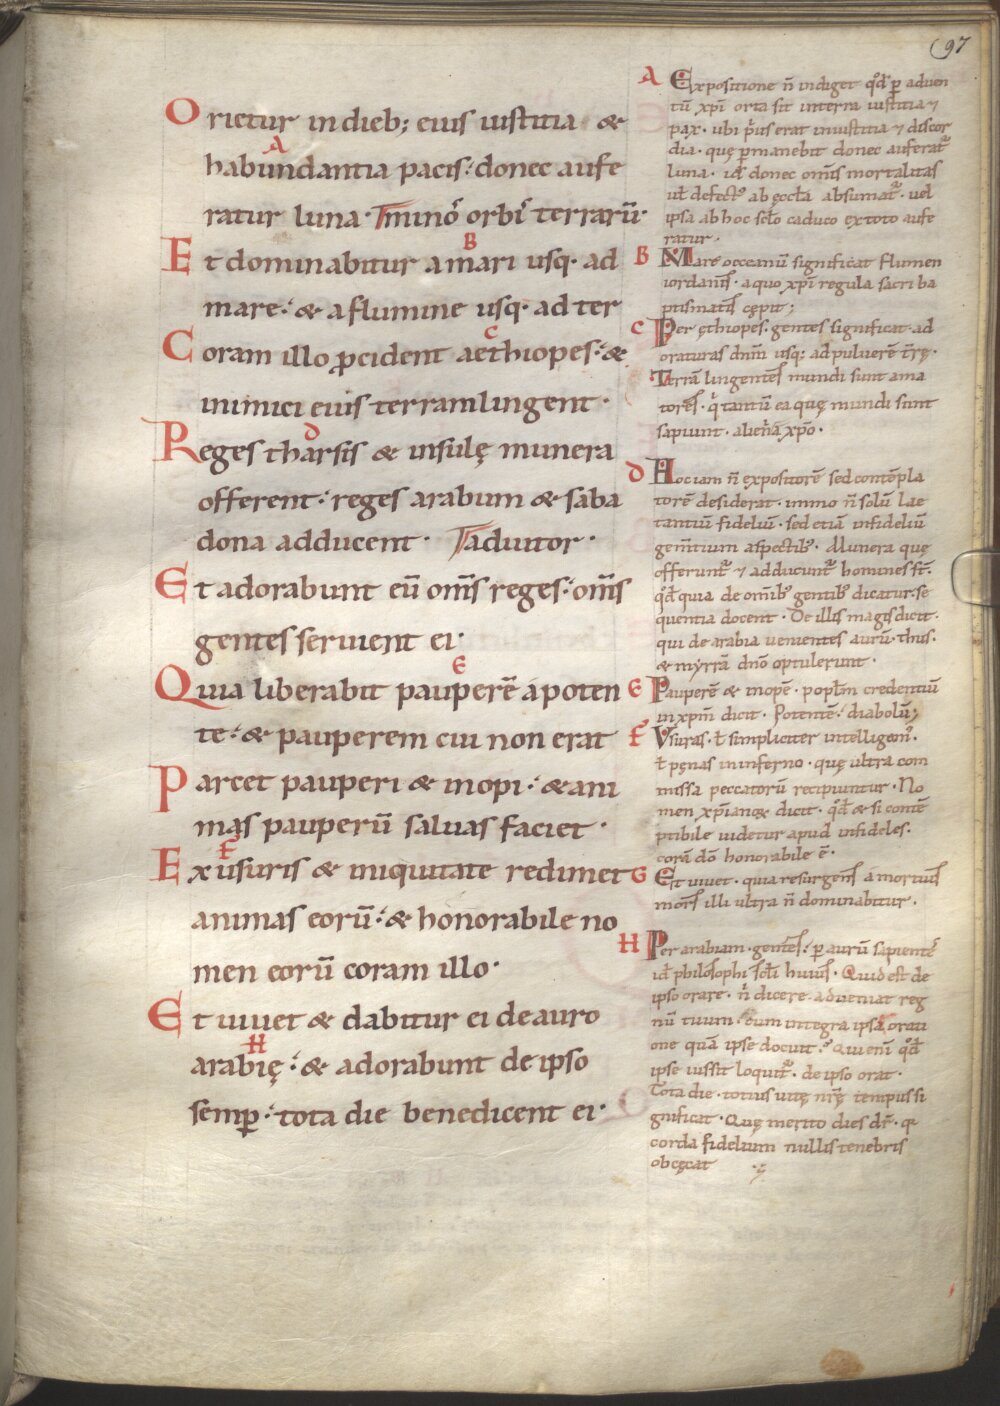 97
Orietur in dieb; eius iustitia &
A
habundantia pacis: donec aufe
ratur luna. Tminō orbi terrarū.
B
Et dominabitur a mari usq. ad
mare: & a flumine usq. ad ter
C
Coram illo pcident aethiopes: &
inimici eius terram lingent.
D
Reges tharsis & insulę munera
offerent: reges arabum & saba
dona adducent. Tadiutor.
Et adorabunt eū om̄s reges: om̄s
gentes seruient ei:
E
Quia liberabit pauperē a poten
te: & pauperem cui non erat
Parcet pauperi & inopi: & ani
mas pauperū saluas faciet.
F
Ex usuris & iniquitate redimet
animas eorū: & honorabile no
men eorū coram illo.
Et uiuet & dabitur ei de auro
H
arabię: & adorabunt de ipso
semp: tota die benedicent ei.
A Expositione n̄ indiget qd̄ p aduen
tū xpī orta sit in terra iustitia ⁊
pax. ubi p'us erat iniustitia ⁊ discor
dia. quę pmanebit donec auferat̄
luna. id̄ donec om̄is mortalitas
uł defect' ab ęccła absumat̄. uel
ipsa ab hoc scło caduco ex toto aufe
ratur.
B Mare occeanū significat flumen
iordanis. a quo xpī regula sacri ba
ptismatis cępit;
C Per ęthiopes: gentes significat ad
oraturas dnm̄ usq: ad puluerē t̄rę.
Terrā lingentes mundi sunt ama
tores. q' tantū ea quę mundi sunt
sapiunt. aliena xpō.
D Hoc iam n̄ expositorē sed contēpla
torē desiderat. immo n̄ solū lae
tantiū fideliū. sed etiā infideliū
gem̄tium aspectib'. Munera quę
offerunt̄ ⁊ adducunt̄ homines st̄.
qd̄ quia de omīb' gentib' dicatur. se
quentia docent. De illis magis dicit.
qui de arabia uenientes aurū. thus.
& myrrā dnō optulerunt.
E Pauperē & inopē. poplm̄ credentiū
in xpm̄ dicit. Potentē: diabolū;
F Vsuras. ł simpliciter intelligem'.
ł pęnas in inferno. quę ultra com
missa peccatorū recipiuntur. No
men xp̄ianoꝝ dicit. qd̄ & si contē
ptibile uidetur apud infideles.
corā dō honorabile ē.
G Et uiuet. quia resurgens a mortuis
mors illi ultra n̄ dominabitur.
H Per arabiam. gentes: p aurū sapientē
id̄ philosophi scłi huius. Quid est de
ipso orare. n̄ dicere adueniat reg
nū tuum. cum integra ipsa orati
one quā ipse docuit. Qui enī qd̄
ipse iussit loquit̄. de ipso orat.
Tota die. totius uitę nr̄ę tempus si
gnificat. Quę merito dies dr̄. q
corda fidelium nullis tenebris
obcęcat